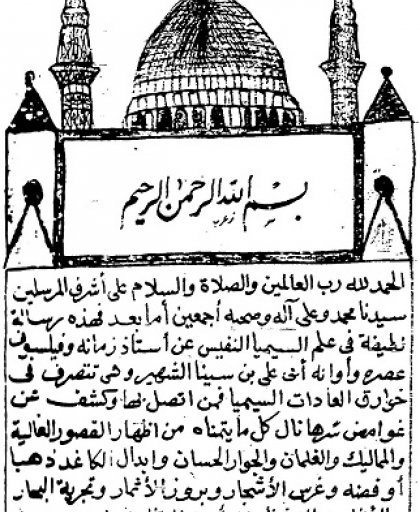 بسم الله الرحمن الرحيم
الحمد لله رب العالمين والصلاة والسلام على أشرف المرسلين
سيدنا محمد وعلى آله وصحبه أجمعين أما بعد فهذه رسالة
لطيفة فى علم السيميا النفيس عن أستاذ زمانه وفيلسوف
عصره وأوانه أبى على بن سينا الشهير وهى تتصرف فى
خوارق العادات السيميا فمن اتصل بها وكشف عن
غوامض سرها نال كل ما يتمناه من اظهار القصور العالية
والمماليك والغلمان والجوار الحسان وابدال الكاغد ذهبا
أو فضة وغرس الأشجار وبروز الأثمار وتجرية البحار